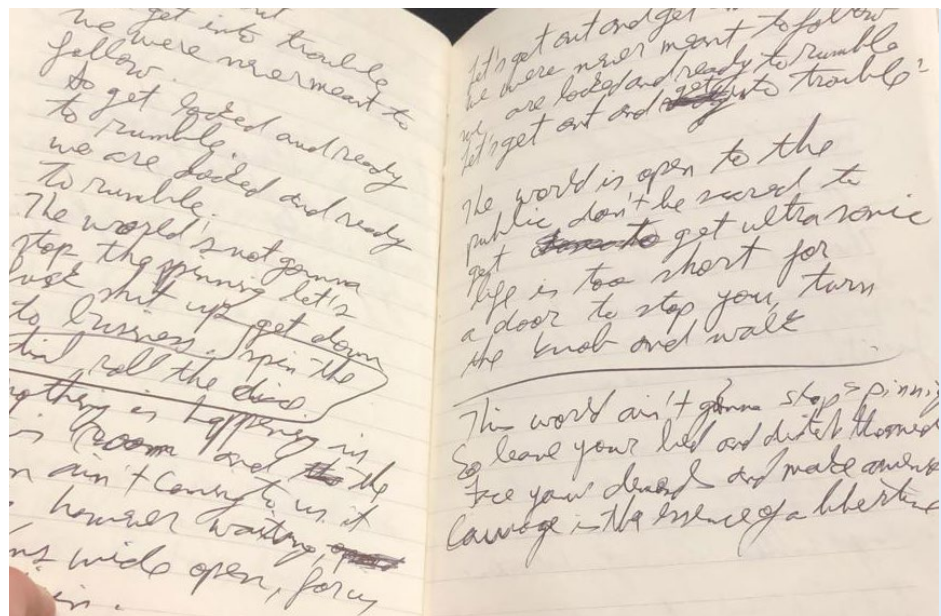 get into trouble
we were never meant to
follow.
So get locked and ready
to rumble.
we are locked and ready
to rumble.
The world's not gonna
stop the spinning let's
shit up get down
to business. spin the
roll the dice.
nothing is happening in
room and the
ain't coming to us it
however waiting,
wide open, for us
in.
Let's get out and get
we were never meant to follow
we are locked and ready to rumble
let's get out and get into trouble
The world is open to the
public don't be scared to
get get ultrasonic
life is too short for
a door to stop you, turn
the knob and walk
This world ain't gonna stop spinning
So leave your bed and
Face your demons and make amens
Courage is the essence of a libertine